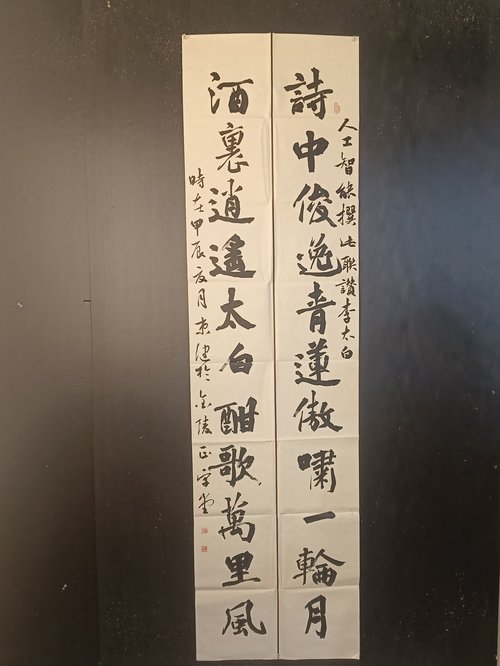 人工智能撰此聯讚李太白
詩中俊逸青蓮傲嘯一輪月
酒裏逍遙太白酣歌萬里風
時在甲辰夏月京建於金陵正字堂